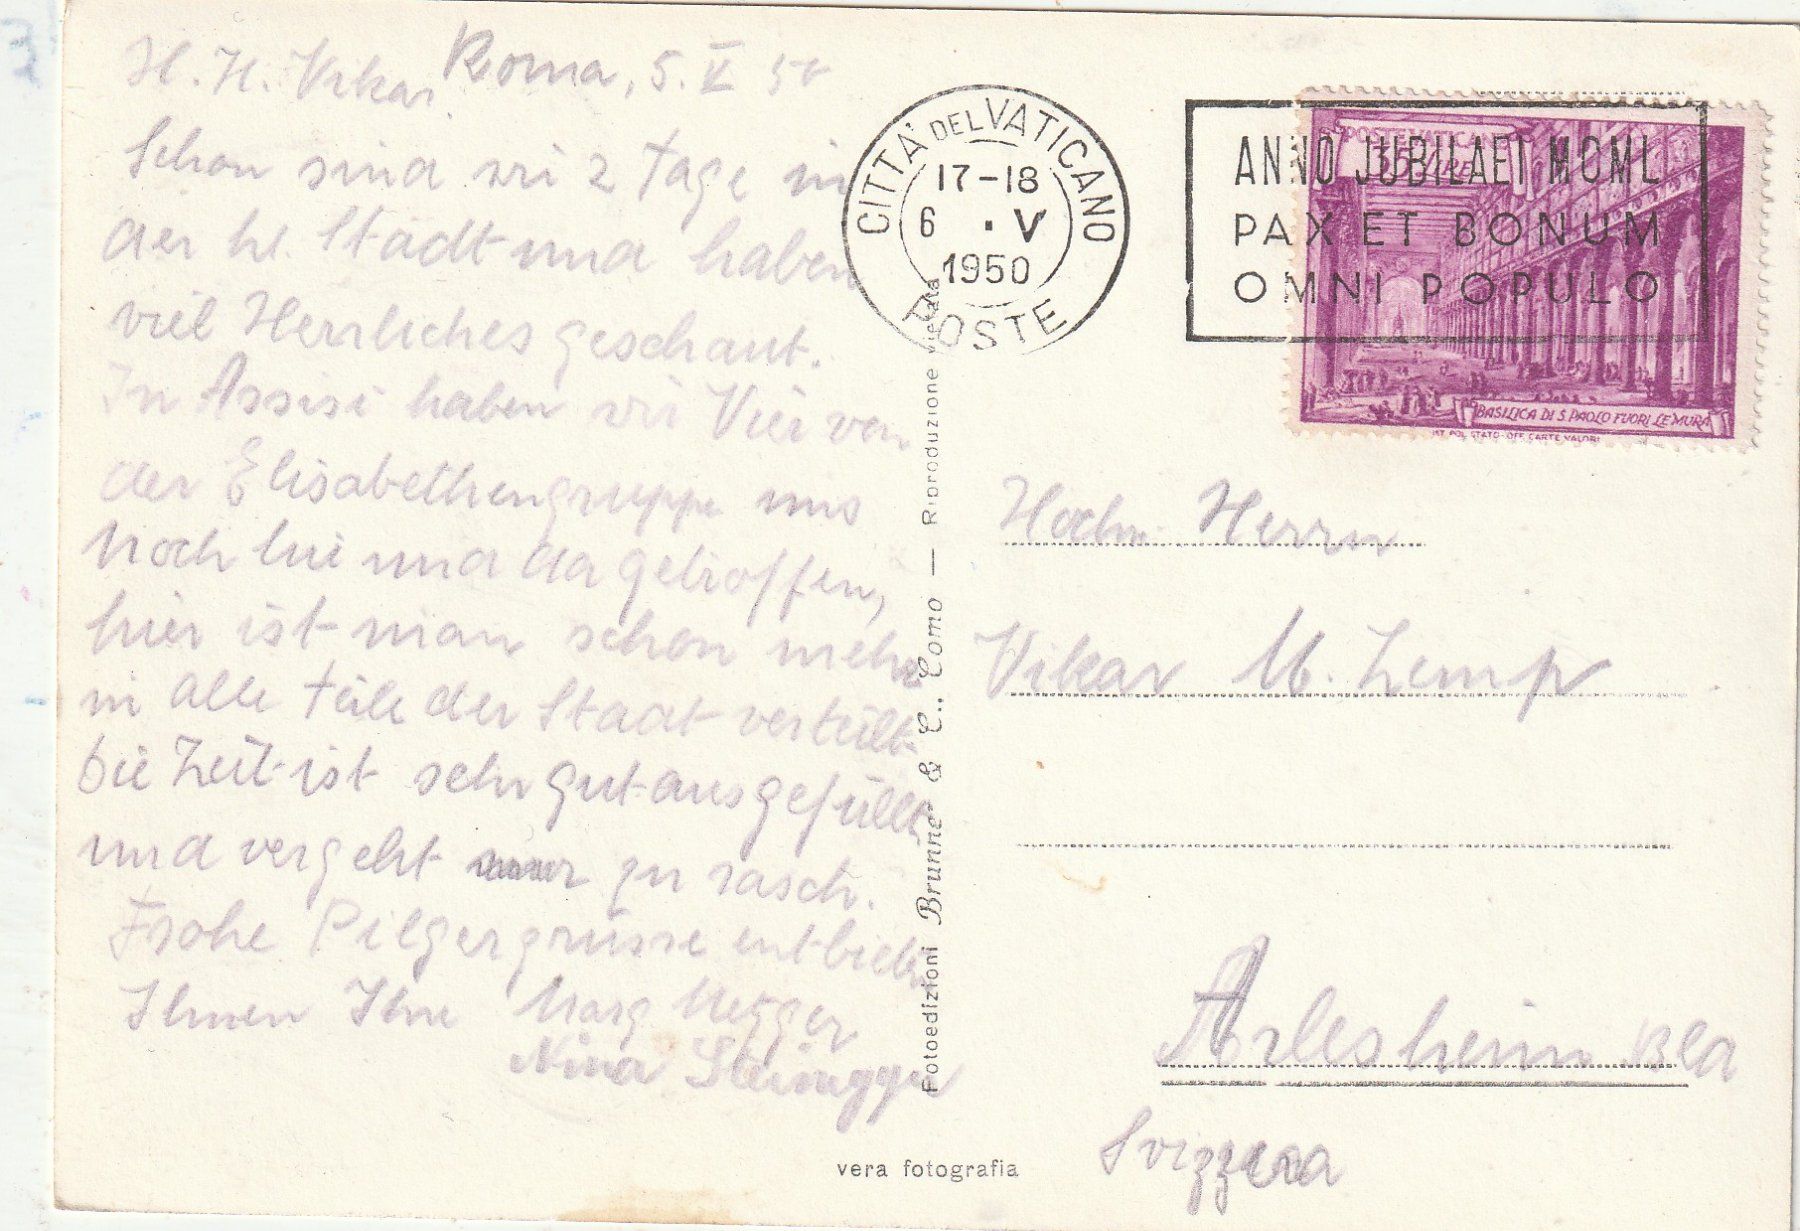 H. H. Vikar Roma, 5. V 50
Schon sind wir 2 Tage in
der hl. Stadt und haben
viel Herrliches geschaut.
In Assisi haben wir Vier von
der Elisabethengruppe uns
noch hie und da getroffen,
hier ist man schon mehr
in alle Teile der Stadt verteilt.
Die Zeit ist sehr gut ausgefüllt
und vergeht nur zu rasch.
Frohe Pilgergrüsse entbietet
Ihnen Ihre Marg Metzger
Nina
CITTA' DEL VATICANO
17-18
6 . V
1950
POSTE
ANNO JUBILAEI MCML
PAX ET BONUM
OMNI POPULO
POSTE VATICANE
35 LIRE
BASILICA DI S. PAOLO FUORI LE MURA
IST. POL. STATO-OFF. CARTE VALORI
Fotoedizioni Brunner & C., Como — Riproduzione vietata
Hochw. Herrn
Vikar M. Zemp
Arlesheim
Svizzera
vera fotografia